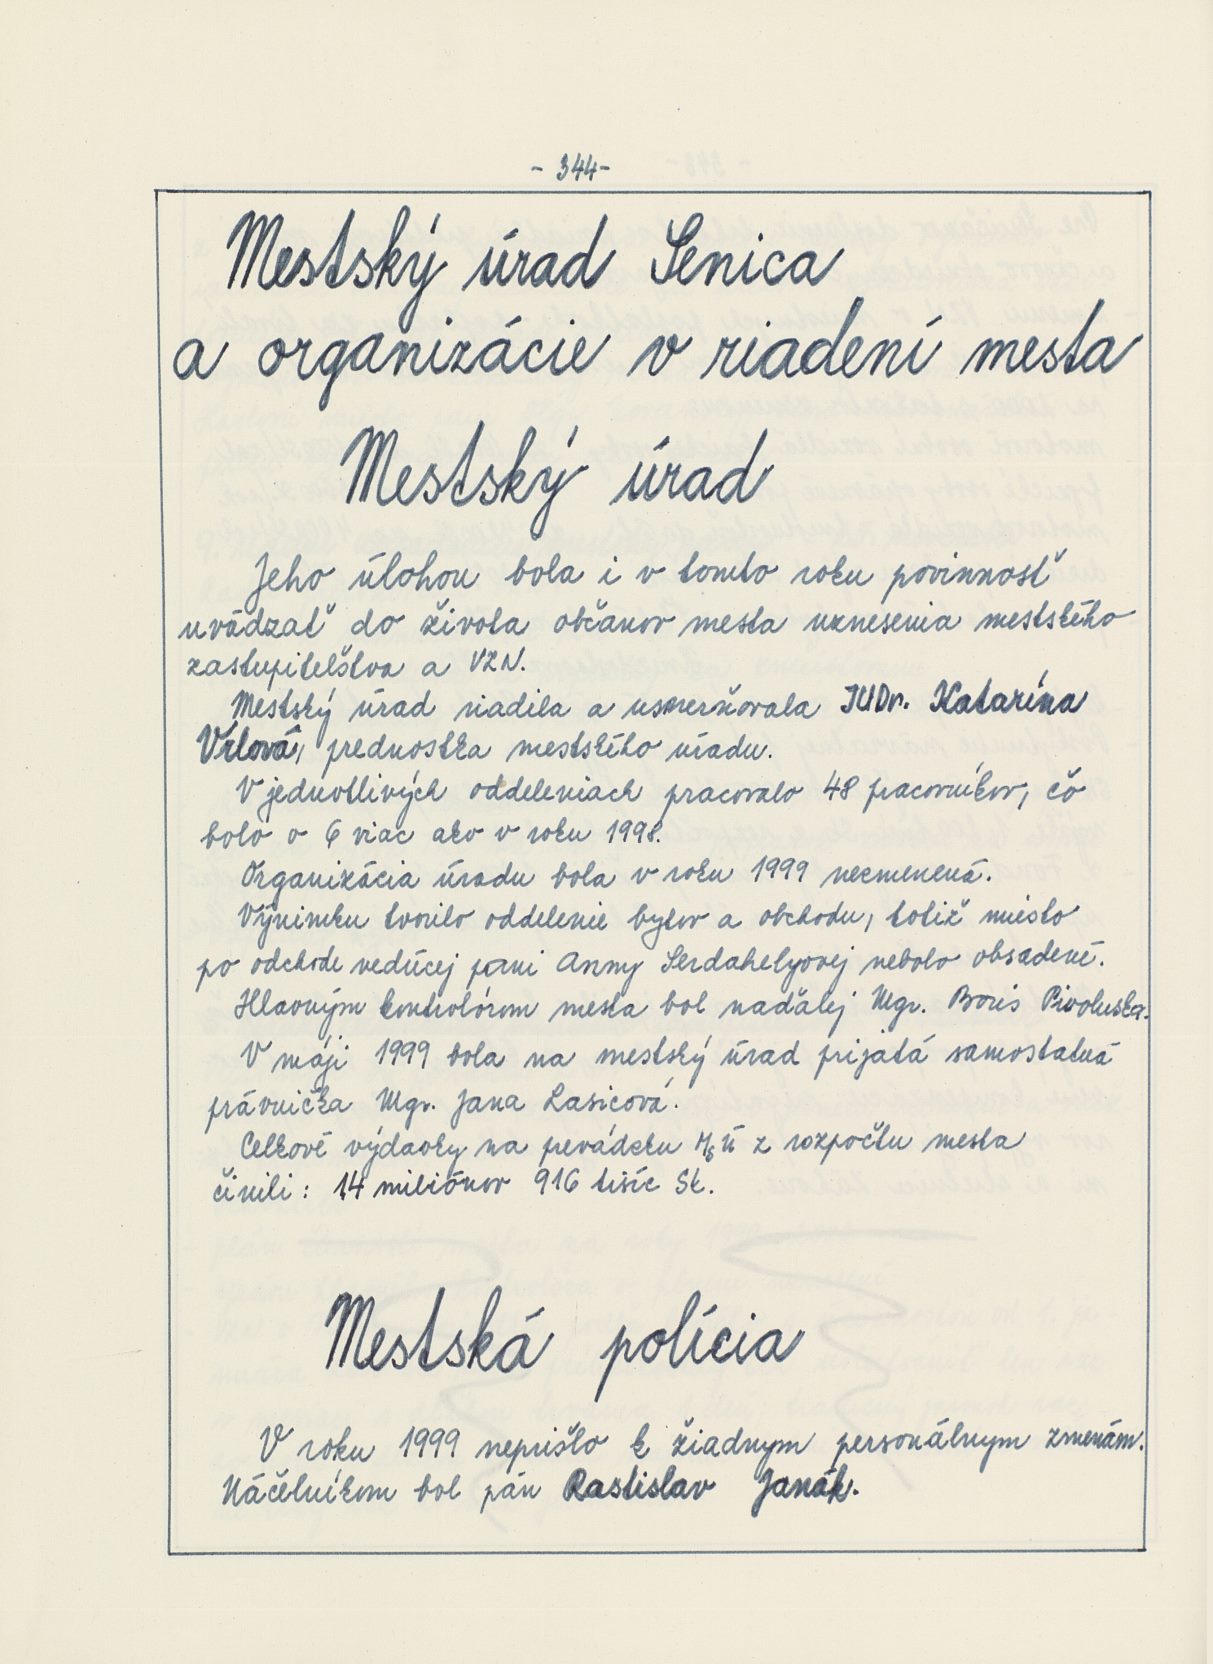 - 344 -
Mestský úrad Senica
a organizácie v riadení mesta
Mestský úrad
Jeho úlohou bola i v tomto roku povinnosť
uvádzať do života občanov mesta uznesenia mestského
zastupiteľstva a VZN.
Mestský úrad riadila a usmerňovala JUDr. Katarína
Vrlová, prednostka mestského úradu.
V jednotlivých oddeleniach pracovalo 48 pracovníkov, čo
bolo o 6 viac ako v roku 1998.
Organizácia úradu bola v roku 1999 nezmenená.
Výnimku tvorilo oddelenie bytov a obchodu, totiž miesto
po odchode vedúcej pani Anny Serdahelyovej nebolo obsadené.
Hlavným kontrolórom mesta bol naďalej Mgr. Boris Pivoluska.
V máji 1999 bola na mestský úrad prijatá samostatná
právnička Mgr. Jana Lasicová.
Celkové výdavky na prevádzku MsÚ z rozpočtu mesta
činili: 14 miliónov 916 tisíc Sk.
Mestská polícia
V roku 1999 neprišlo k žiadnym personálnym zmenám.
Náčelníkom bol pán Rastislav Janák.